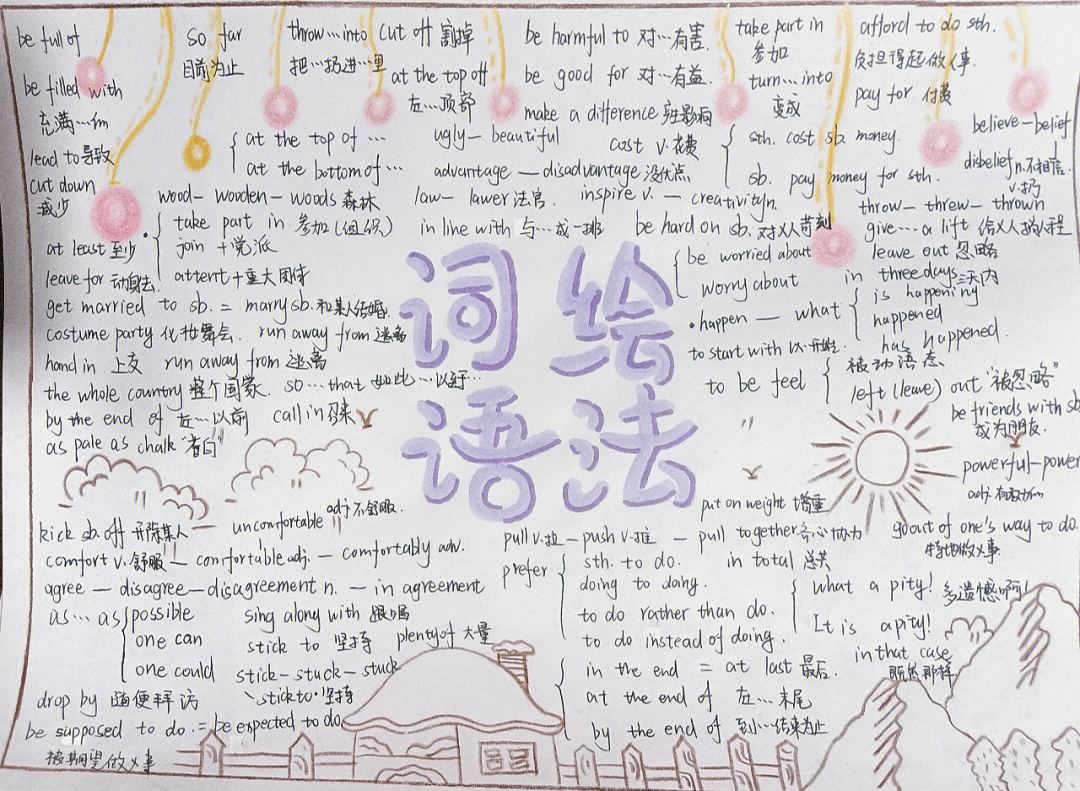 be full of
be filled with
充满…
lead to 导致
cut down
减少
at least 至少
leave for 动身去
so far
目前为止
throw…into
把…扔进…里
cut off 割掉
at the top off
在…顶部
be harmful to 对…有害.
be good for 对…有益.
make a difference
take part in
参加
turn…into
变成
afford to do sth.
负担得起做某事.
pay for 付费
believe—belief
disbelief n.不相信
v.扔
throw—threw—thrown
give…a lift
at the top of …
at the bottom of …
ugly—beautiful
advantage—disadvantage
cost v.花费
sth. cost sb. money.
sb. pay money for sth.
wood—wooden—woods 森林
law—lawer 法官.
inspire v.—creativity n.
take part in 参加(组织)
join +党派
attent+重大团体
in line with 与…成一排
be hard on sb. 对某人苛刻
be worried about
worry about
leave out 忽略
in three days 三天内
get married to sb. = marry sb. 和某人结婚.
costume party 化妆舞会. run away from 逃离
hand in 上交 run away from 逃离
the whole country 整个国家. so…that 如此…以致…
by the end of 在…以前 call in 召来
as pale as chalk
词绘
语法
·happen—what
is happening
happened
has happened.
to start with 以…开始.
to be feel
被动语态
left (leave) out "被忽略"
be friends with sb
成为朋友.
powerful-power
put on weight 增重
kick sb. off 开除某人
uncomfortable adj.不舒服.
comfort v.舒服—comfortable adj.—comfortably adv.
agree—disagree—disagreement n.—in agreement
as…as
possible
one can
one could
sing along with 跟唱
stick to 坚持 plenty of 大量
stick-stuck-stuck
stick to·坚持
drop by 随便拜访
be supposed to do.=be expected to do.
被期望做某事
pull v.拉—push v.推—pull together 齐心协力
go out of one's way to do.
特地做某事.
prefer
sth. to do.
doing to dong.
to do rather than do.
to do instead of doing.
in total 总共
what a pity! 多遗憾啊!
It is a pity!
in that case
既然那样
in the end = at last 最后.
at the end of 在…末尾
by the end of 到…结束为止